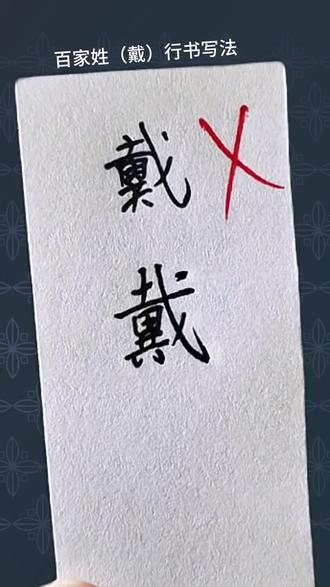 百家姓（戴）行书写法
戴
戴